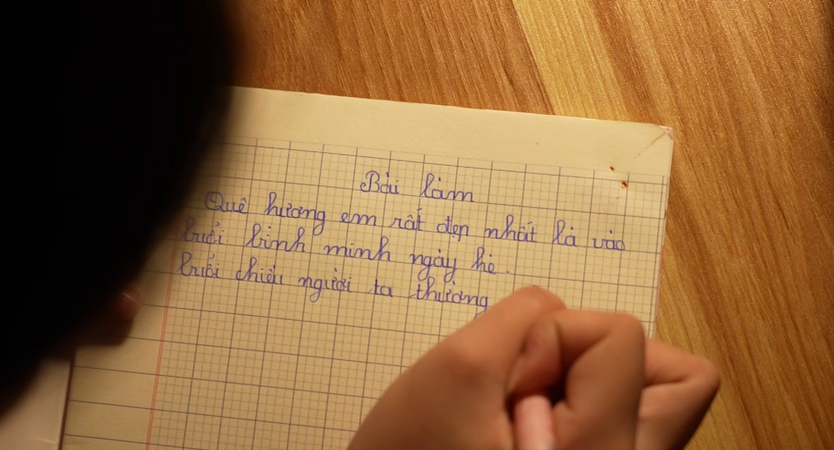 Bài làm
Quê hương em rất đẹp nhất là vào
buổi bình minh ngày hè.
buổi chiều người ta thường